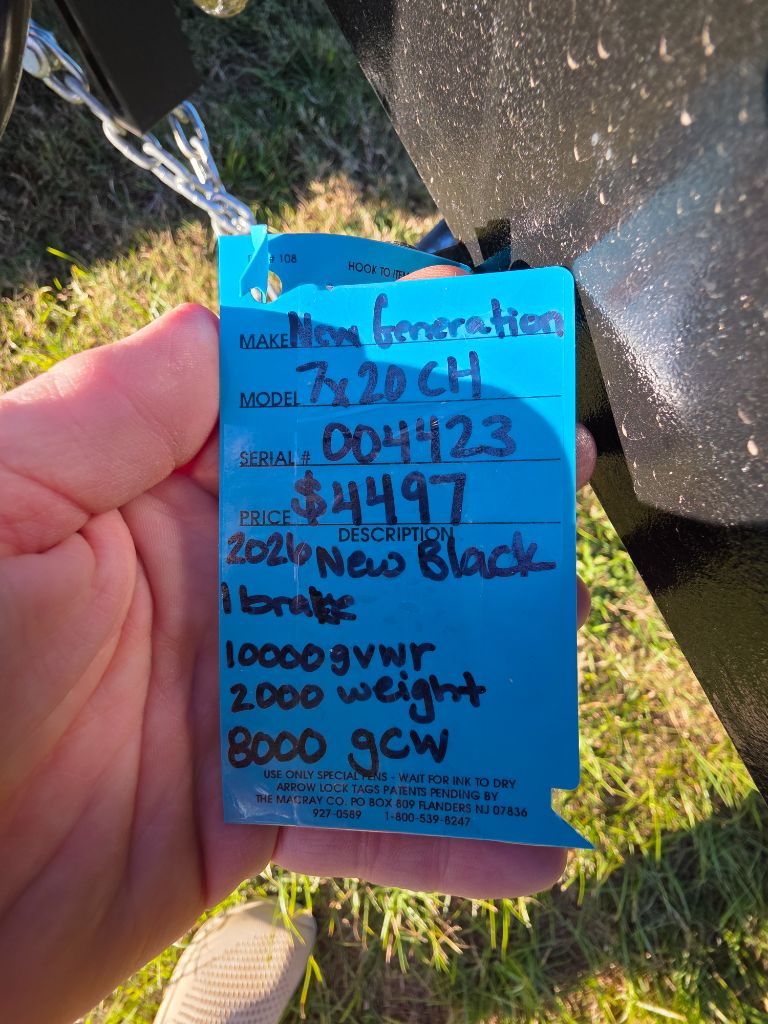 # 108 HOOK TO ITEM
MAKE New Generation
MODEL 7x20 CH
SERIAL # 004423
PRICE $4497
DESCRIPTION
2026 New Black
1 brake
10000 gvwr
2000 weight
8000 gcw
USE ONLY SPECIAL PENS - WAIT FOR INK TO DRY
ARROW LOCK TAGS PATENTS PENDING BY
THE MACRAY CO. PO BOX 809 FLANDERS NJ 07836
927-0589 1-800-539-8247